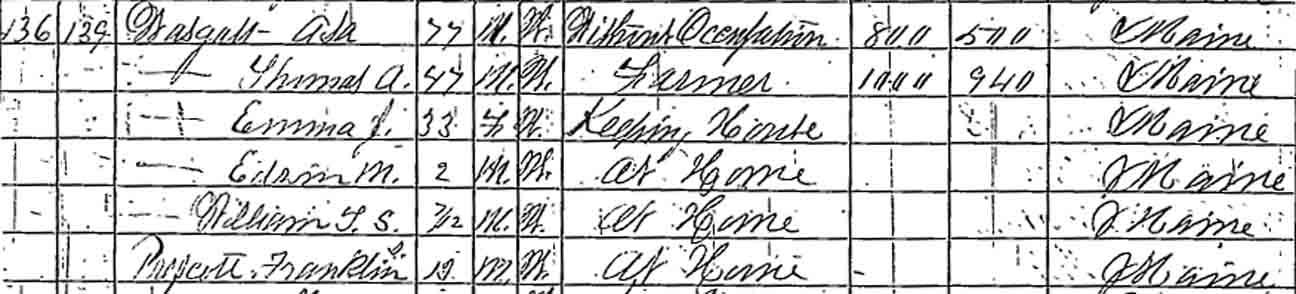 136 139 Wasgatt Asa 77 M. W. Without Occupation 800 500 Maine
— Thomas A. 47 M. W. Farmer 1000 940 Maine
— Emma J. 33 F W. Keeping House Maine
— Edwin M. 2 M. W. At Home Maine
— William T. S. 7/12 M. W. At Home Maine
Prescott Franklin 19 M. W. At Home Maine